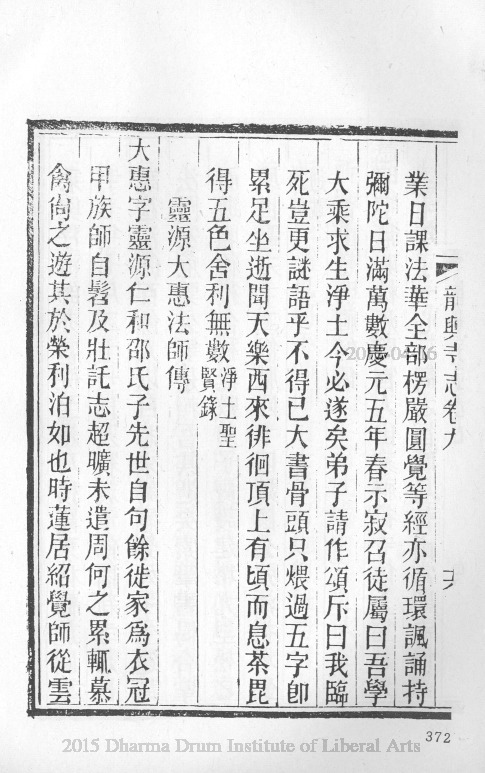 龍興寺志卷九
業日課法華全部楞嚴圓覺等經亦循環諷誦持
彌陀日滿萬數慶元五年春示寂召徒屬曰吾學
大乘求生淨土今必遂矣弟子請作頌斥曰我臨
死豈更謎語乎不得已大書骨頭只煨過五字卽
累足坐逝聞天樂西來徘徊頂上有頃而息荼毘
得五色舍利無數淨土聖賢錄
靈源大惠法師傳
大惠字靈源仁和邵氏子先世自句餘徙家爲衣冠
甲族師自髫及壯託志超曠未遣周何之累輒慕
禽尙之遊其於榮利泊如也時蓮居紹覺師從雲
372
2015 Dharma Drum Institute of Liberal Arts